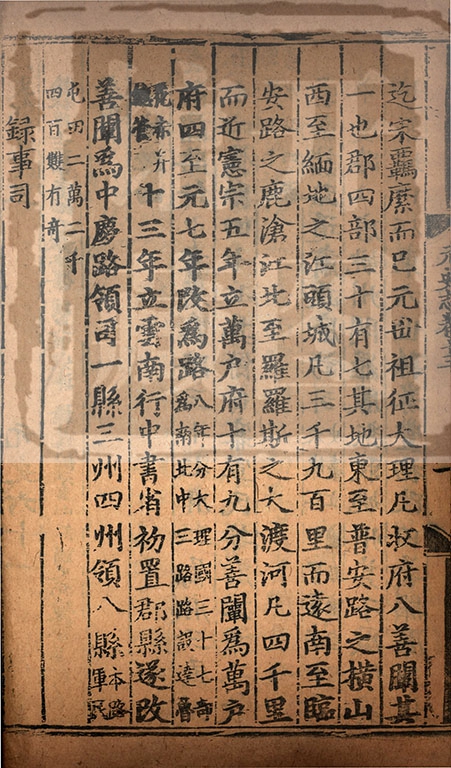 迄宋羈縻而已元世祖征大理凡收府八善闡其
一也郡四部三十有七其地東至普安路之橫山
西至緬地之江頭城凡三千九百里而遠南至臨
安路之鹿滄江北至羅羅斯之大渡河凡四千里
而近憲宗五年立萬户府十有九分善闡爲萬户
府四至元七年改爲路八年分大理國三十七部
爲南北中三路路設達魯
花赤并
總管十三年立雲南行中書省初置郡縣遂改
善闡爲中慶路領司一縣三州四州領八縣本路
軍民
屯田二萬二千
四百雙有奇
録事司